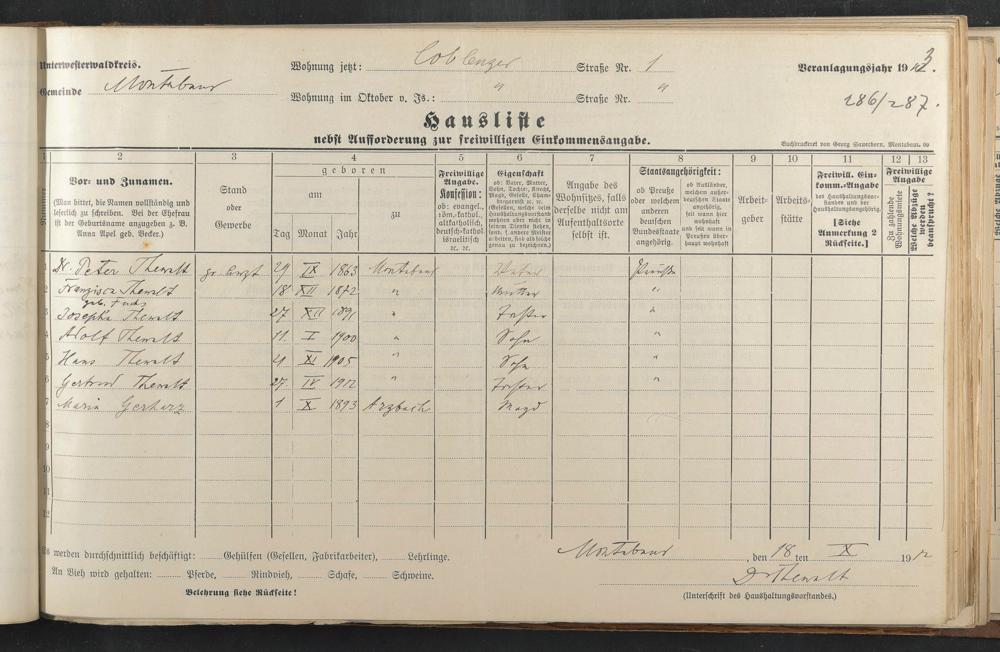 Unterwesterwaldkreis.
Wohnung jetzt: Coblenzer Straße Nr. 1
Veranlagungsjahr 1913.
Gemeinde Montabaur
Wohnung im Oktober v. Js.: " Straße Nr. "
286/287.
Hausliste
nebst Aufforderung zur freiwilligen Einkommensangabe.
Buchdruckerei von Georg Sauerborn, Montabaur.
1 2 3 4 5 6 7 8 9 10 11 12 13
Vor- und Zunamen.
(Man bittet, die Namen vollständig und
leserlich zu schreiben. Bei der Ehefrau
ist der Geburtsname anzugeben z. B.
Anna Apel geb. Becker.)
Stand
oder
Gewerbe
geboren
am
zu
Tag Monat Jahr
Freiwillige
Angabe.
Konfession:
ob: evangel.,
röm.-kathol.,
altkatholisch,
deutsch-kathol.
israelitisch
ꝛc. ꝛc.
Eigenschaft
ob: Vater, Mutter,
Sohn, Tochter, Knecht,
Magd, Geselle,
Angabe des
Wohnsitzes, falls
derselbe nicht am
Aufenthaltsorte
selbst ist.
Staatsangehörigkeit:
ob Preuße
oder welchem
anderen
deutschen
Bundesstaate
angehörig.
ob Ausländer,
welchem außer-
deutschen Staate
angehörig,
seit wann hier
wohnhaft
und seit wann in
Preußen über-
haupt wohnhaft
Arbeit-
geber
Arbeits-
stätte
Freiwill. Ein-
komm.-Angabe
des Haushaltungsvor-
standes und der
Haushaltungsangehörig.
[Siehe
Anmerkung 2
Rückseite.]
Freiwillige
Angabe
Zu zahlende
Wohnungsmiete
Welche Abzüge
werden
beansprucht?
1 Dr. Peter Thewalt pr. Arzt 29 IX 1863 Montabaur Vater Preußen
2 Franziska Thewalt 18 XII 1872 " Mutter "
geb. Fuchs
3 Josepha Thewalt 27 XII 1891 " Tochter "
4 Adolf Thewalt 11. I 1900 " Sohn "
5 Hans Thewalt 4 XI 1905 " Sohn "
6 Gertrud Thewalt 27. IV 1912 " Tochter "
7 Maria Gerharz 1 X 1893 Arzbach Magd
8
9
10
11
12
Es werden durchschnittlich beschäftigt: Gehülfen (Gesellen, Fabrikarbeiter), Lehrlinge.
Montabaur den 18 ten X 1912
An Vieh wird gehalten: Pferde, Rindvieh, Schafe, Schweine.
Dr Thewalt
Belehrung siehe Rückseite!
(Unterschrift des Haushaltungsvorstandes.)